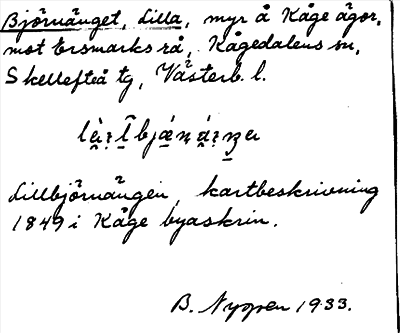 Björnänget, Lilla, myr å Kåge ägor,
mot Ersmarks rå, Kågedalens sn,
Skellefteå tg, Västerb. l.
Lillbjörnängen, kartbeskrivning
1849 i Kåge byaskrin.
B. Nyppen 1933.